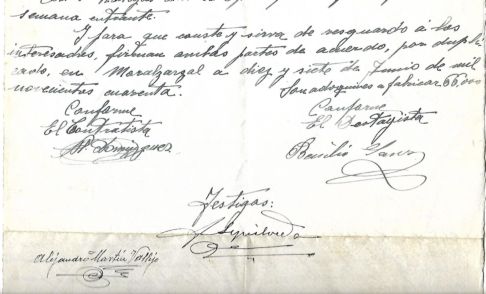 semana entrante.
Y para que conste y sirva de resguardo á los
interesados, firman ambas partes de acuerdo, por dupli-
cado, en Moralzarzal a diez y siete de Junio de mil
novecientos cuarenta.
Son adoquines a fabricar 66,000
Conforme
El Contratista
Dominguez
Conforme
El Destajista
Basilio
Testigos:
Alejandro Martín Vallejo